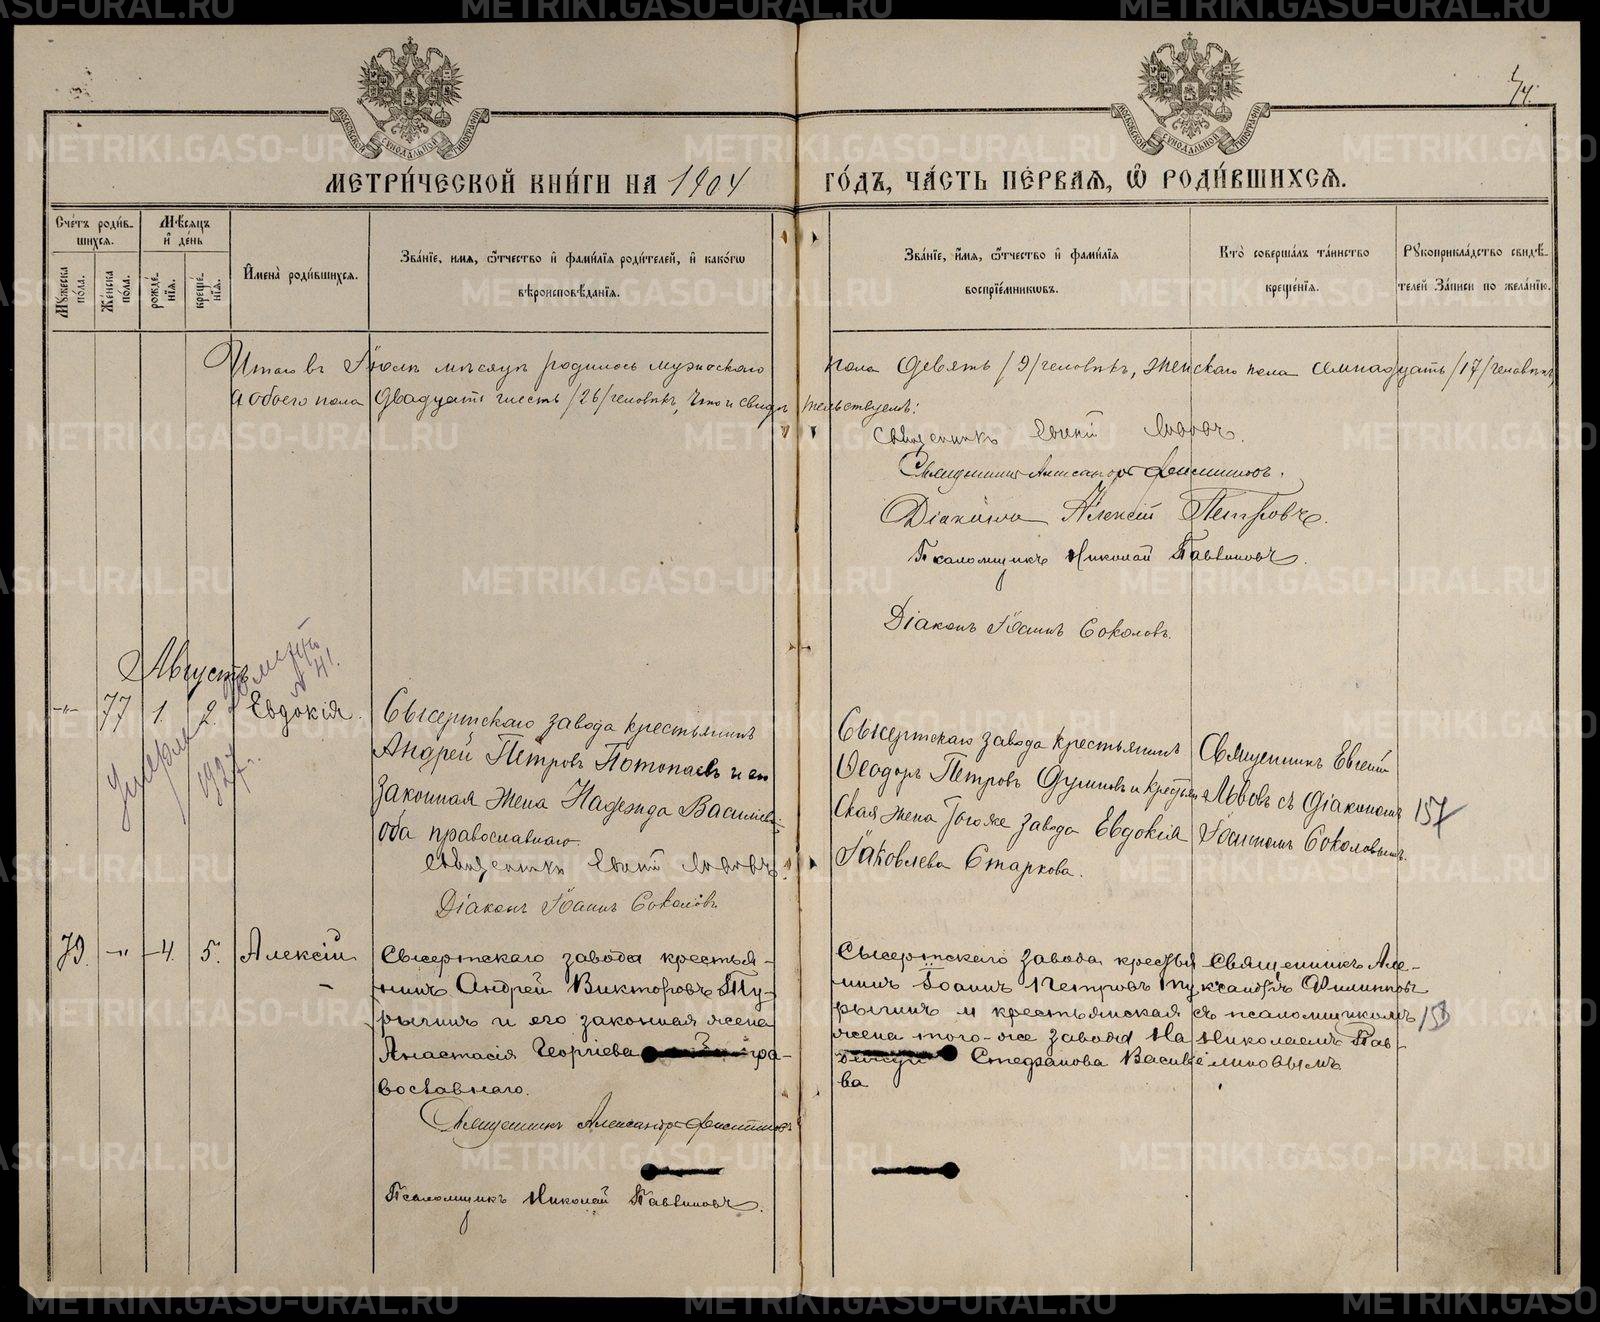 74.
МОСКОВСКОЙ СѴНОДАЛЬНОЙ ТИПОГРАФІИ
МОСКОВСКОЙ СѴНОДАЛЬНОЙ ТИПОГРАФІИ
МЕТРИ́ЧЕСКОЙ КНИ́ГИ НА 1904 ГО́ДЪ, ЧА́СТЬ ПЕ́РВАЯ, Ѡ РОДИ́ВШИХСЯ.
Сче́тъ роди́в-
шихся.
Мꙋжеска по́ла.
Же́нска по́ла.
Мѣ́сяцъ
и де́нь
рожде́нїя.
креще́нїя.
И҆мена̀ роди́вшихся.
Зва́нїе, имя, ѻ҆́тчество и҆ фами́лїя роди́телей, и҆ како́гѡ
вѣроисповѣ́данїя.
Зва́нїе, и҆́мя, ѻ҆́тчество и҆ фами́лїя
воспрїе́мникѡвъ.
Кто̀ соверша́лъ та́инство
креще́нїя.
Рꙋкоприкла́дство свидѣ́-
телей За́писи по жела́нїю.
Итого въ Іюлѣ мѣсяцѣ родилось мужескаго пола девять /9/ человѣкъ, женскаго пола семнадцать /17/ человѣкъ,
а обоего пола двадцать шесть /26/ человѣкъ, что и свидѣтельствуемъ:
Священникъ Евгеній Львовъ.
Священникъ Александръ Филипповъ.
Діаконъ Алексій Петровъ.
Псаломщикъ Николай Павлиновъ.
Діаконъ Іоаннъ Соколовъ.
Августъ
-"- 77 1. 2. Евдокія.
Умерла
1927 г.
№ 41.
Сысертскаго завода крестьянинъ
Андрей Петровъ Потопаевъ и его
законная жена Надежда Васильева,
оба православнаго.
Священникъ Евгеній Львовъ.
Діаконъ Іоаннъ Соколовъ.
Сысертскаго завода крестьянинъ
Ѳеодоръ Петровъ и крестьян-
ская жена тогоже завода Евдокія
Іаковлева Старкова.
Священникъ Евгеній
Львовъ съ діакономъ
Іоанномъ Соколовымъ.
157
79. -"- 4. 5. Алексій
Сысертскаго завода крестья-
нинъ Андрей Викторовъ Ту-
рыгинъ и его законная жена
Анастасія Георгіева пра-
вославнаго.
Священникъ Александръ Филипповъ
Псаломщикъ Николай Павлиновъ.
Сысертскаго завода крестья
нинъ Іоаннъ Петровъ Ту
рыгинъ и крестьянская
жена того-же завода На
Стефанова Василіе
ва
Священникъ Але-
ксандръ Филипповъ
съ псаломщикомъ
Николаемъ Пав-
линовымъ
158
METRIKI.GASO-URAL.RU